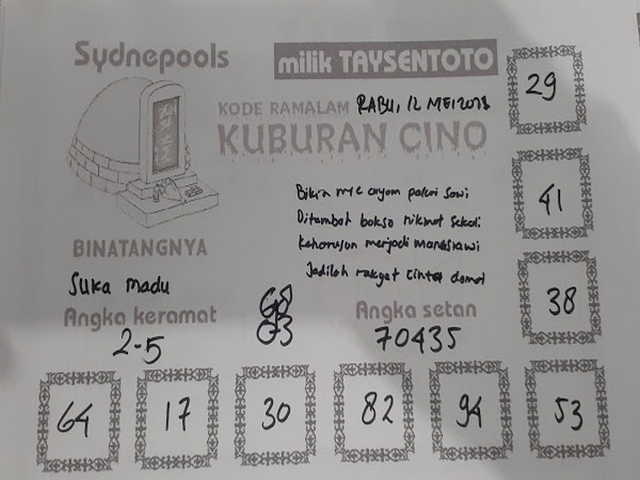 Sydnepools
milik TAYSENTOTO
KODE RAMALAM RABU, 12 MEI 2028
KUBURAN CINO
29
41
38
Bikin mie ayam pakai sawi
Ditambah bakso nikmat sekali
Keharusan menjadi manusiawi
Jadilah rakyat cinta damai
BINATANGNYA
Suka madu
Angka keramat
2-5
68
03
Angka setan
70435
64
17
30
82
94
53